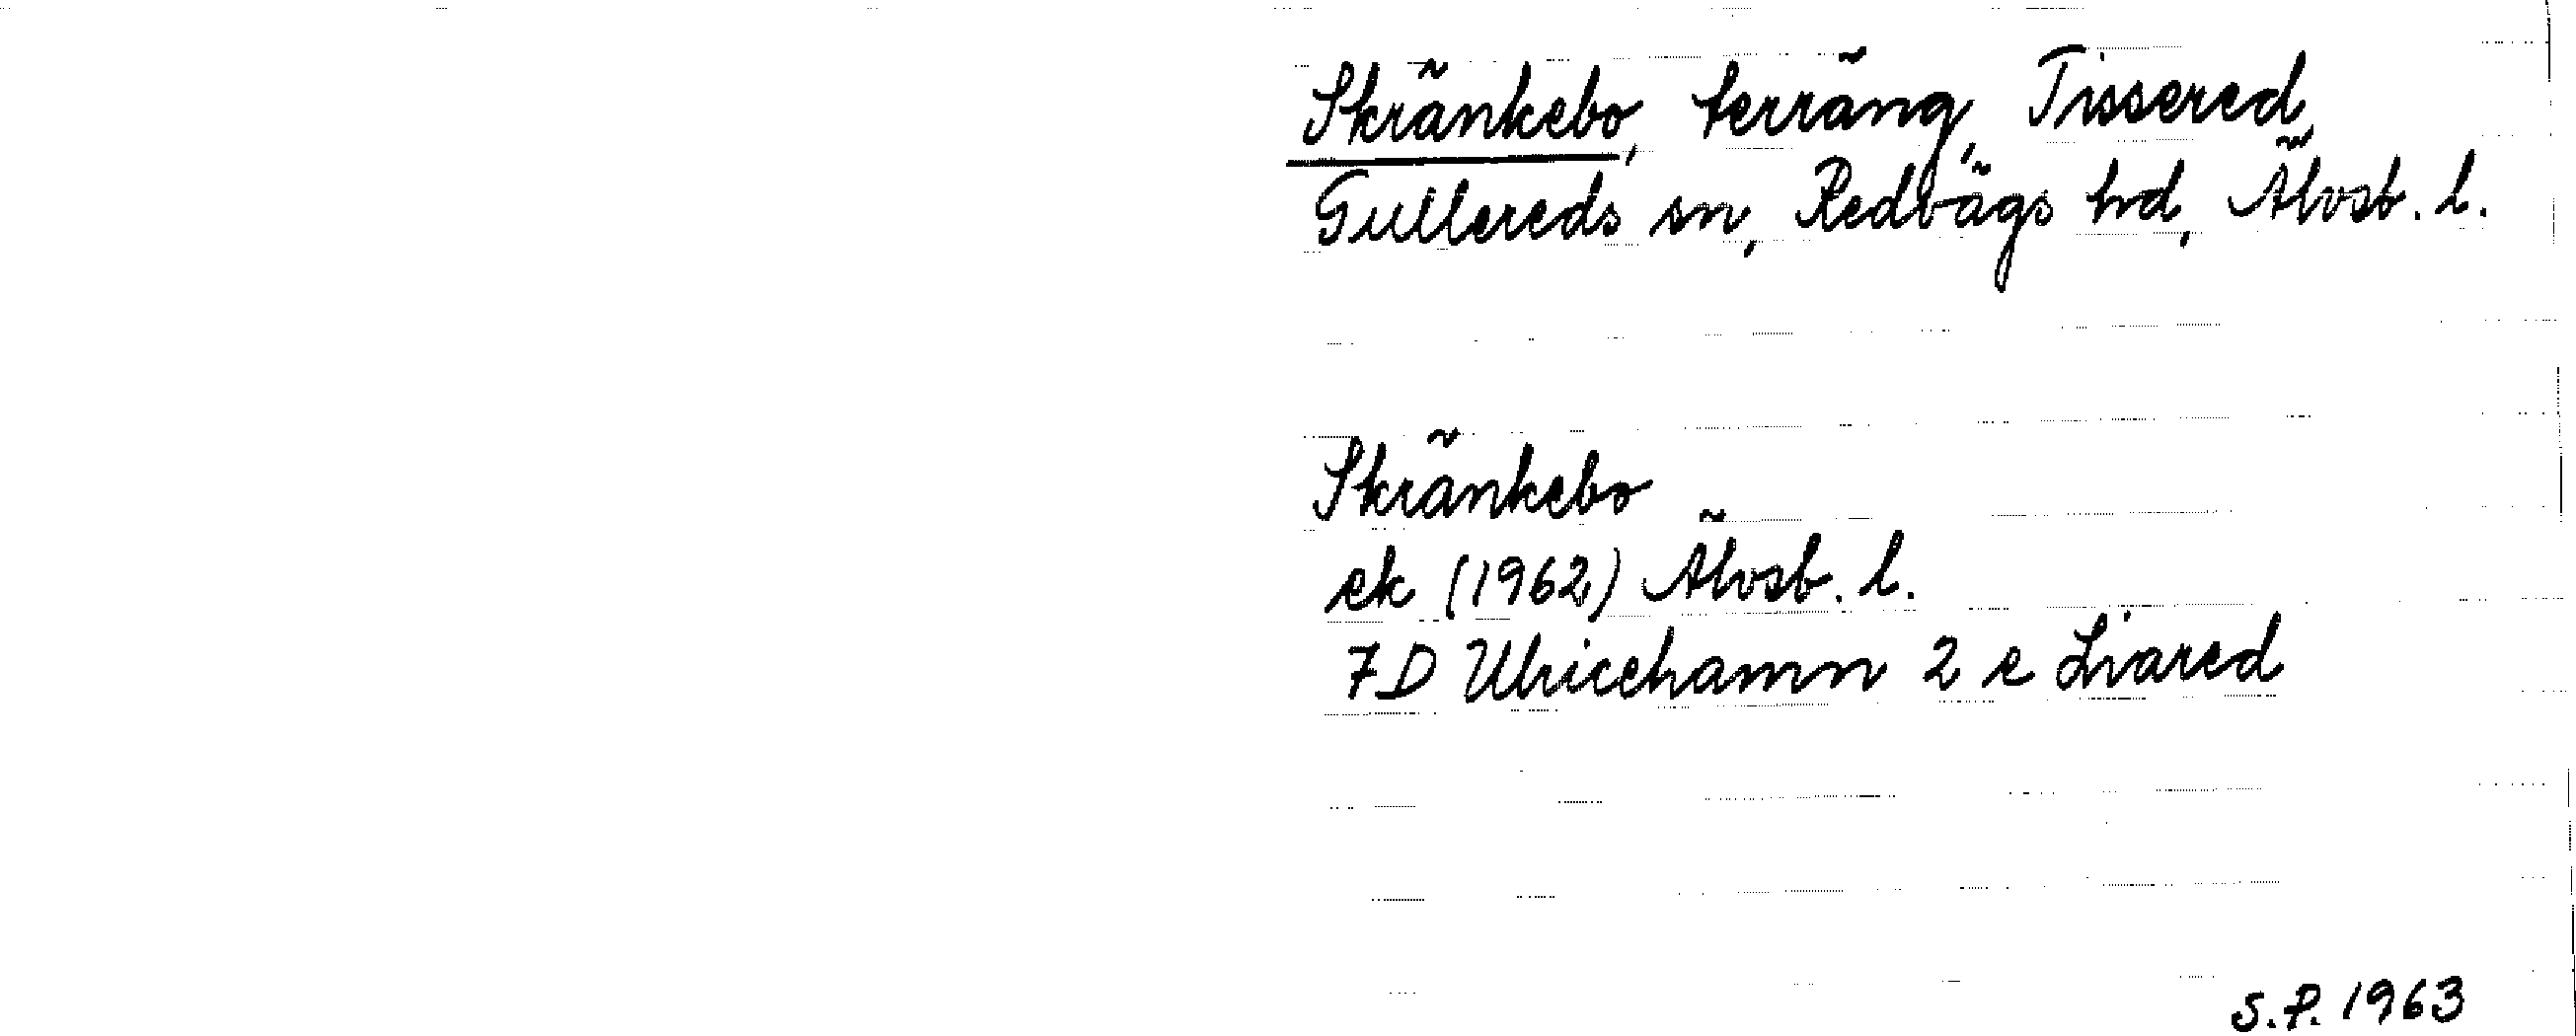 Skränkebo, terräng, Tissered,
Gullereds sn, Redvägs hd, Älvsb. l.
Skränkebo
ek (1962) Älvsb. l.
7D Ulricehamn 2 e Liared
S.P. 1963